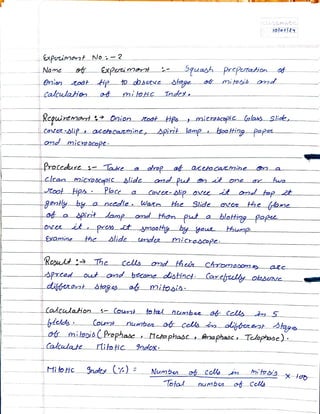 Experiment No :- 2
Name of Experiment :- Squash preparation of
Onion root tip to observe stage of mitosis and
calculation of mitotic Index.
Requirement :→ Onion root tips, microscopic Glass Slide,
cover slip, acetocarmine, Spirit lamp, blotting paper
and microscope.
Procedure :- Take a drop of acetocarmine on a
clean microscopic slide and put on it one or two
root tips. Place a cover-slip over it and tap it
gently by a needle. Warm the Slide over the flame
of a spirit lamp and then put a blotting paper
over it, press it smoothly by your thump.
Examine the slide under microscope.
Result :→ The cells and their Chromosomes are
spread out and become distinct. Carefully observe
different stages of mitosis.
Calculation :- Count total number of cells in 5
fields. Count number of cells in different stages
of mitosis (Prophase, Metaphase, Anaphase, Telophase).
Calculate Mitotic Index.
Mitotic Index (%) = Number of cells in mitosis × 100
Total number of cells